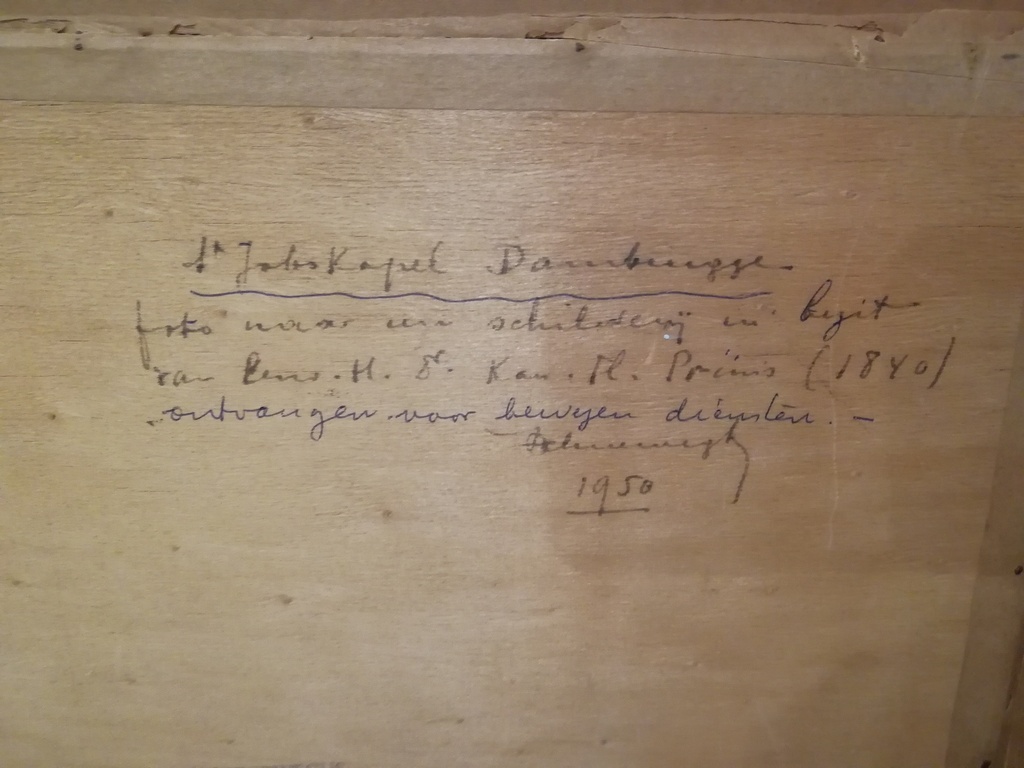 St Jobskapel Dambrugge
foto naar een schilderij in bezit
van Eerw. H. Dr. Kan. Fl. Prims (1840)
ontvangen voor bewezen diensten. —
1950